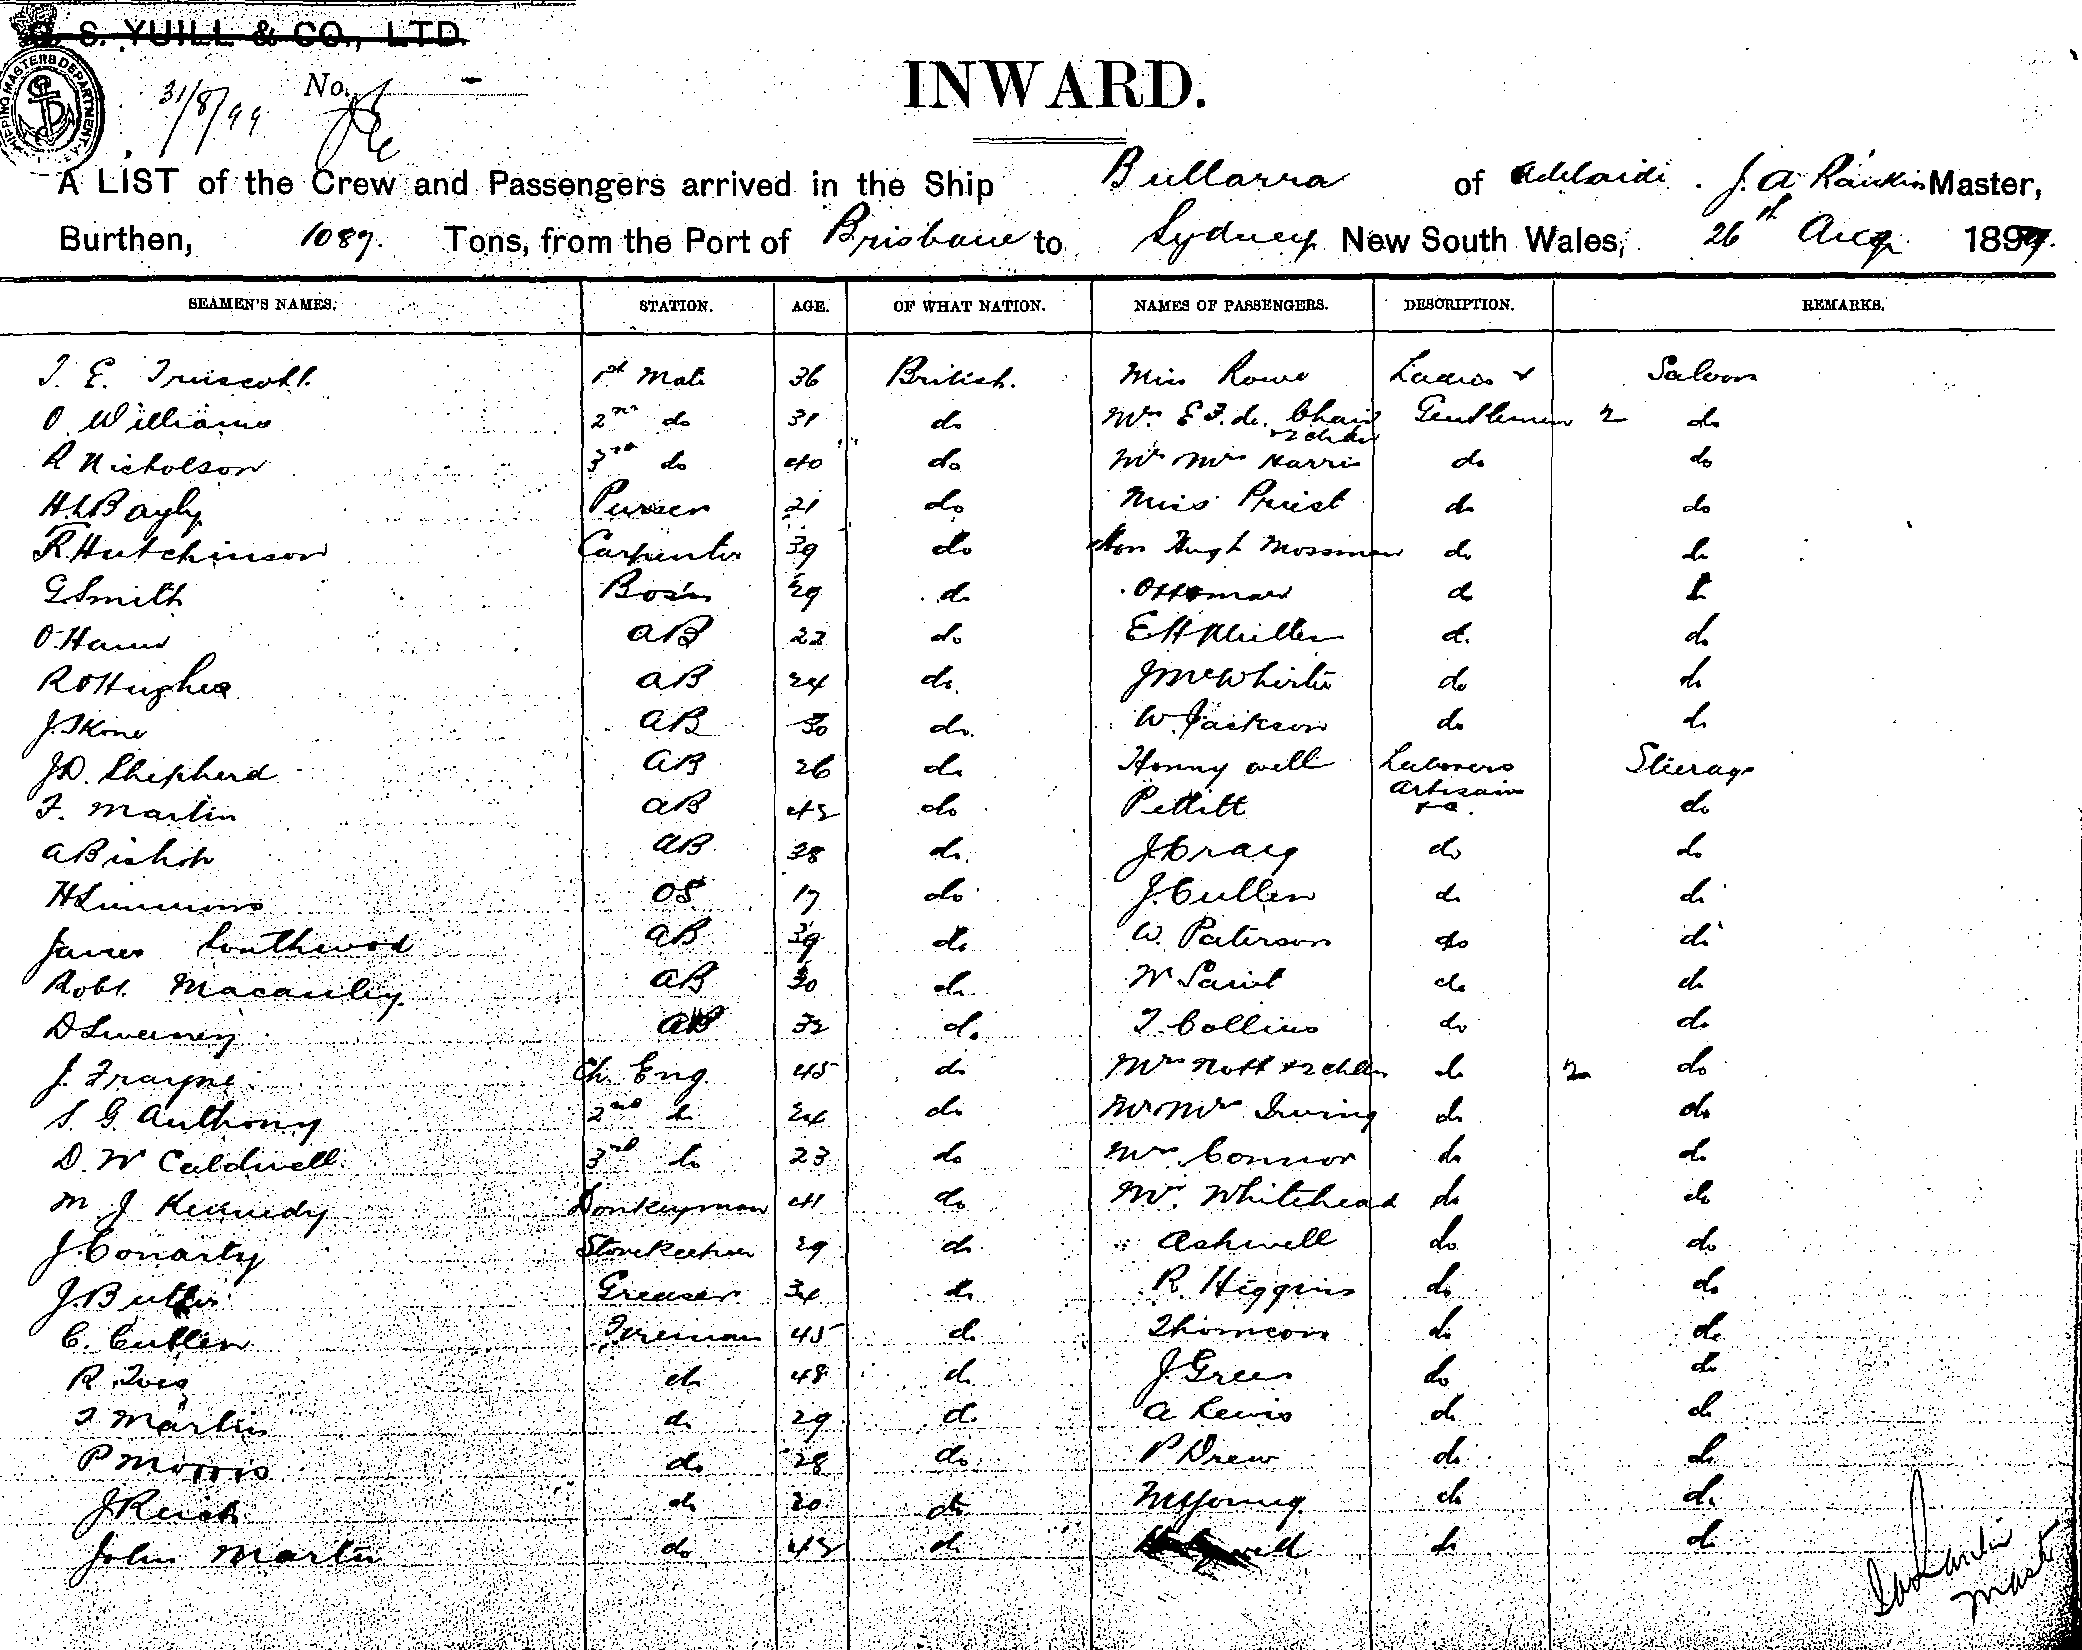 G. S. YUILL & CO., LTD.
SHIPPING MASTERS DEPARTMENT
31/8/99 No.
INWARD.
A LIST of the Crew and Passengers arrived in the Ship Bullarra of Adelaide. J. A Rankin Master,
Burthen, 1089. Tons, from the Port of Brisbane to Sydney New South Wales, 26th Aug 1899.
SEAMEN'S NAMES. STATION. AGE. OF WHAT NATION. NAMES OF PASSENGERS. DESCRIPTION. REMARKS.
T. E. Truscott. 1st Mate 36 British. Miss Rowe Ladies & Saloon
O. Williams 2nd do 31 do Mrs E F. de. Chair & 2 chdn Gentlemen 2 do
R Nicholson 3rd do 40 do Mr Mrs Harris do do
H L Bayly Purser 21 do Miss Priest do do
R Hutchinson Carpenter 39 do Hon Hugh Mossman do do
G Smith Bosn 29 do Ottoman do do
O Hann AB 22 do E H Muller do do
R O Hughes AB 24 do. J McWhirter do do
J. Skone AB 30 do. W. Jackson do do
J D. Shepherd AB 26 do Honny well Laborers Steerage
F. Martin AB 42 do Pettitt Artisans &c. do
A Bishop AB 38 do. J Craig do do
H Simmons OS 17 do J. Cullen do do
James Southwood AB 39 do W. Paterson do do
Robt. Macauley AB 30 do W Saint do do
D Sweeney AB 32 do. T. Collins do do
J. Frayne Ch Eng. 45 do Mrs Nott & 2 chdn do 2 do
S. G. Anthony 2nd do 24 do Mr Mrs Irving do do
D. W Caldwell. 3rd do 23 do Mrs Connor do do
M J Kennedy Donkeyman 41 do Mr. Whitehead do do
J. Conarty Storekeeper 29 do " Ashwell do do
J. Butler Greaser 34 do R. Higgins do do
C. Cullen Fireman 45 do Thomson do do
R. do 48 do J. Green do do
T Martin do 29 do A Lewis do do
P Morris do 28 do P Drew do do
J do 20 do M Young do do
John Martin do 42 do do do
J A Rankin
Master